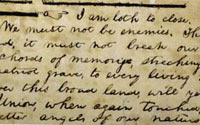 I am loth to close.
We must not be enemies. Th
d, it must not break our
chords of memory, streching
patriot grave, to every living
over this broad land, will ye
Union, when again touched,
better angels of our nature